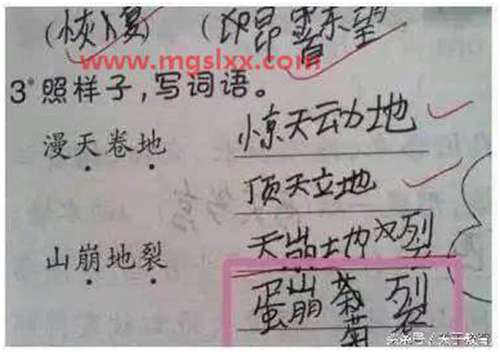 (恢复) (昂首东望)
www.mgslxx.com
3*照样子,写词语。
惊天动地
漫天卷地
顶天立地
天崩地裂
山崩地裂
蛋崩菊裂
头条号